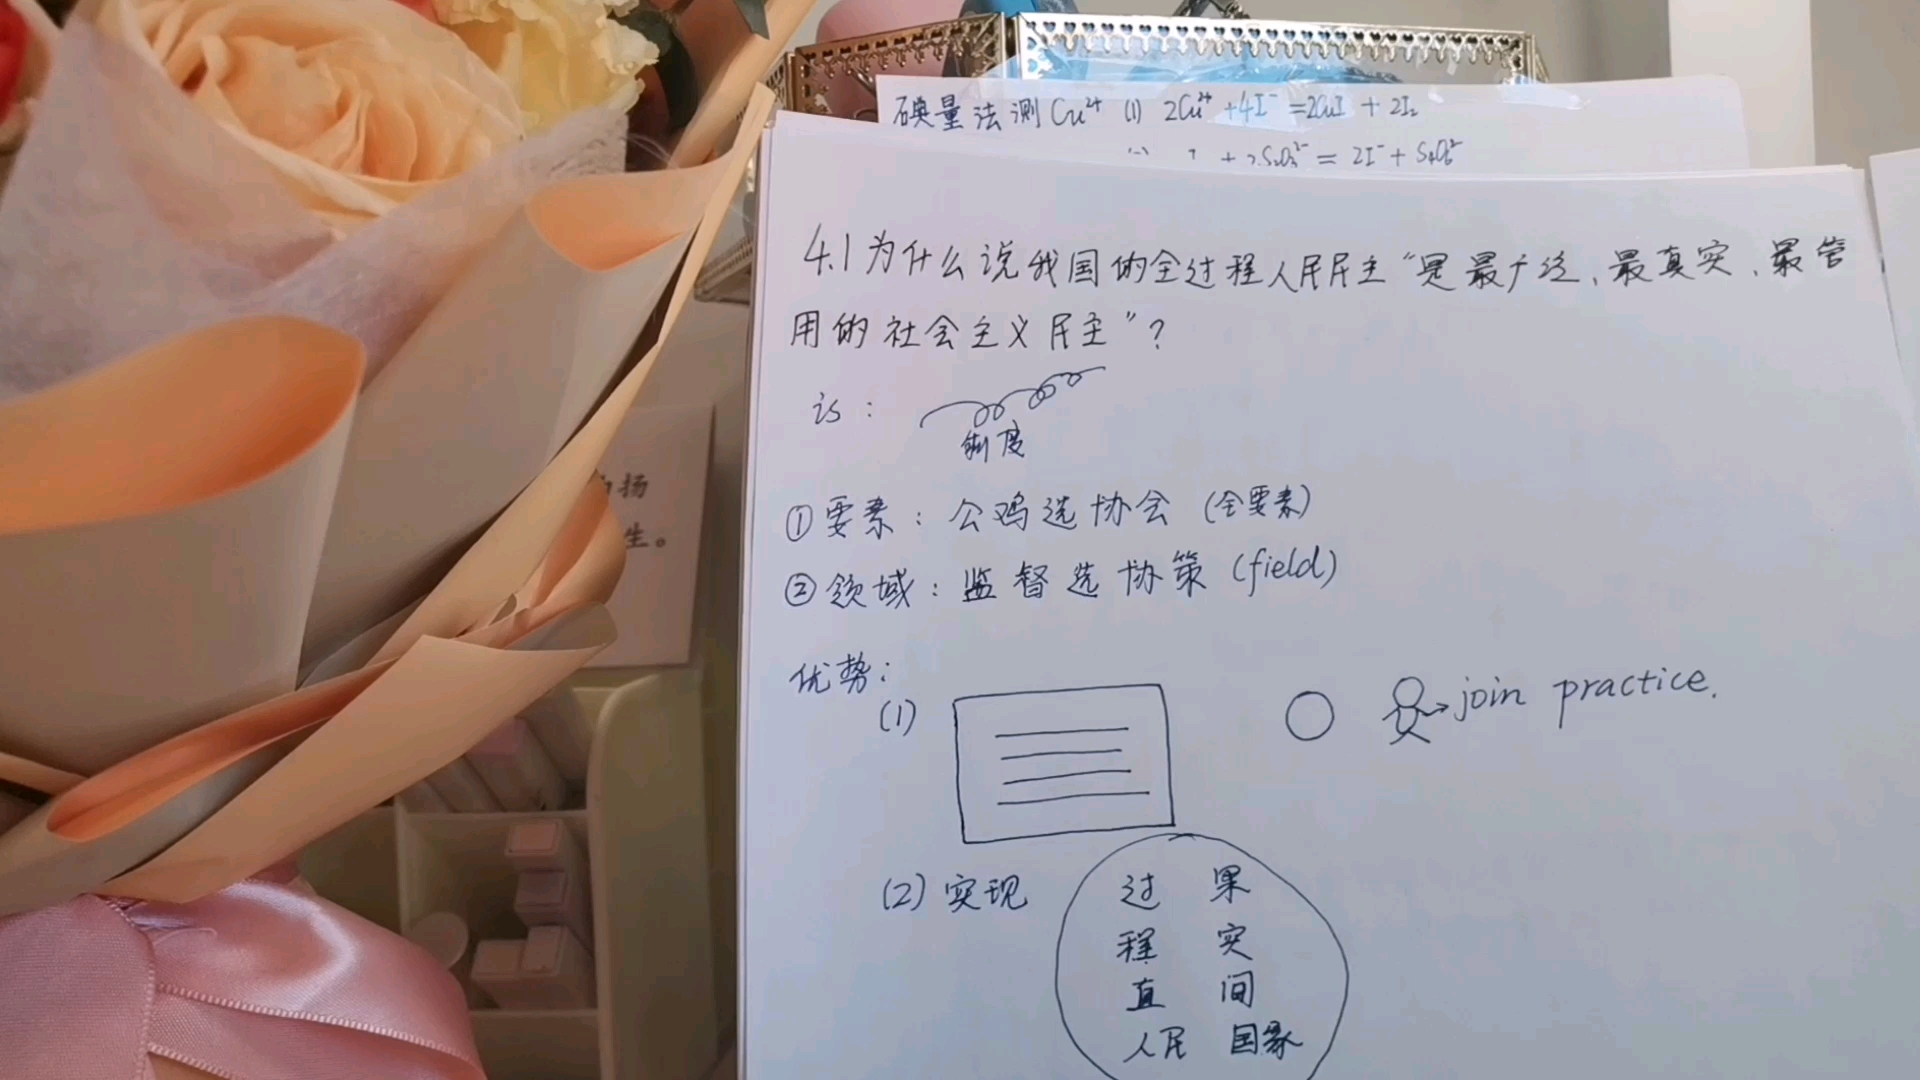 碘量法测Cu²⁺ (1) 2Cu²⁺+4I⁻=2CuI + 2I₂
+2S₂O₃²⁻= 2I⁻+ S₄O₆²⁻
4.1为什么说我国的全过程人民民主“是最广泛、最真实、最管
用的社会主义民主”?
is:
制度
①要素: 公鸡选协会 (全要素)
②领域: 监督选协策 (field)
优势:
(1)
join practice.
(2) 实现
过 果
程 实
直 间
人民 国家
扬
生。